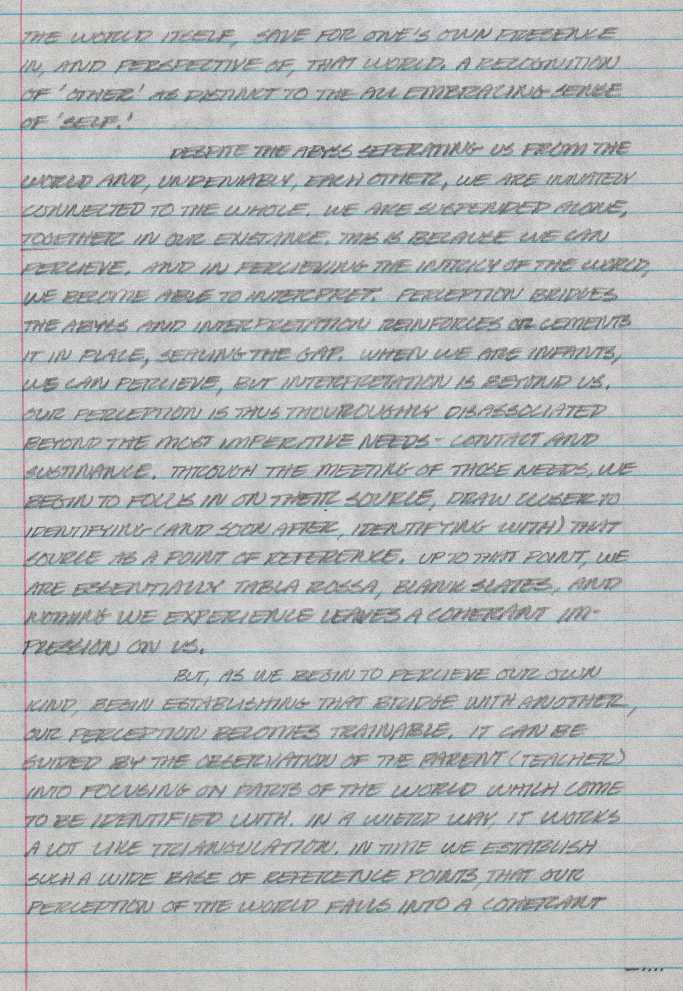 THE WORLD ITSELF, SAVE FOR ONE'S OWN PRESENCE
IN, AND PERSPECTIVE OF, THAT WORLD. A RECOGNITION
OF 'OTHER' AS DISTINCT TO THE ALL EMBRACING SENSE
OF 'SELF.'
DESPITE THE ABYSS SEPERATING US FROM THE
WORLD AND, UNDENIABLY, EACH OTHER, WE ARE INNATELY
CONNECTED TO THE WHOLE. WE ARE SUSPENDED ALONE,
TOGETHER IN OUR EXISTANCE. THIS IS BECAUSE WE CAN
PERCIEVE. AND IN PERCIEVING THE INTRICY OF THE WORLD,
WE BECOME ABLE TO INTERPRET. PERCEPTION BRIDGES
THE ABYSS AND INTERPRETATION REINFORCES OR CEMENTS
IT IN PLACE, SEALING THE GAP. WHEN WE ARE INFANTS,
WE CAN PERCIEVE, BUT INTERPRETATION IS BEYOND US.
OUR PERCEPTION IS THUS THOUROUGHLY DISASSOCIATED
BEYOND THE MOST IMPERITIVE NEEDS - CONTACT AND
SUSTINANCE. THROUGH THE MEETING OF THOSE NEEDS, WE
BEGIN TO FOCUS IN ON THEIR SOURCE, DRAW CLOSER TO
IDENTIFYING (AND SOON AFTER, IDENTIFYING WITH) THAT
SOURCE AS A POINT OF REFERENCE. UP TO THAT POINT, WE
ARE ESSENTIALLY TABLA ROSSA, BLANK SLATES, AND
NOTHING WE EXPERIENCE LEAVES A COHERANT IM-
PRESSION ON US.
BUT, AS WE BEGIN TO PERCIEVE OUR OWN
KIND, BEGIN ESTABLISHING THAT BRIDGE WITH ANOTHER,
OUR PERCEPTION BECOMES TRAINABLE. IT CAN BE
GUIDED BY THE OBSERVATION OF THE PARENT (TEACHER)
INTO FOCUSING ON PARTS OF THE WORLD WHICH COME
TO BE IDENTIFIED WITH. IN A WIERD WAY, IT WORKS
A LOT LIKE TRIANGULATION. IN TIME WE ESTABLISH
SUCH A WIDE BASE OF REFERENCE POINTS, THAT OUR
PERCEPTION OF THE WORLD FALLS INTO A COHERANT